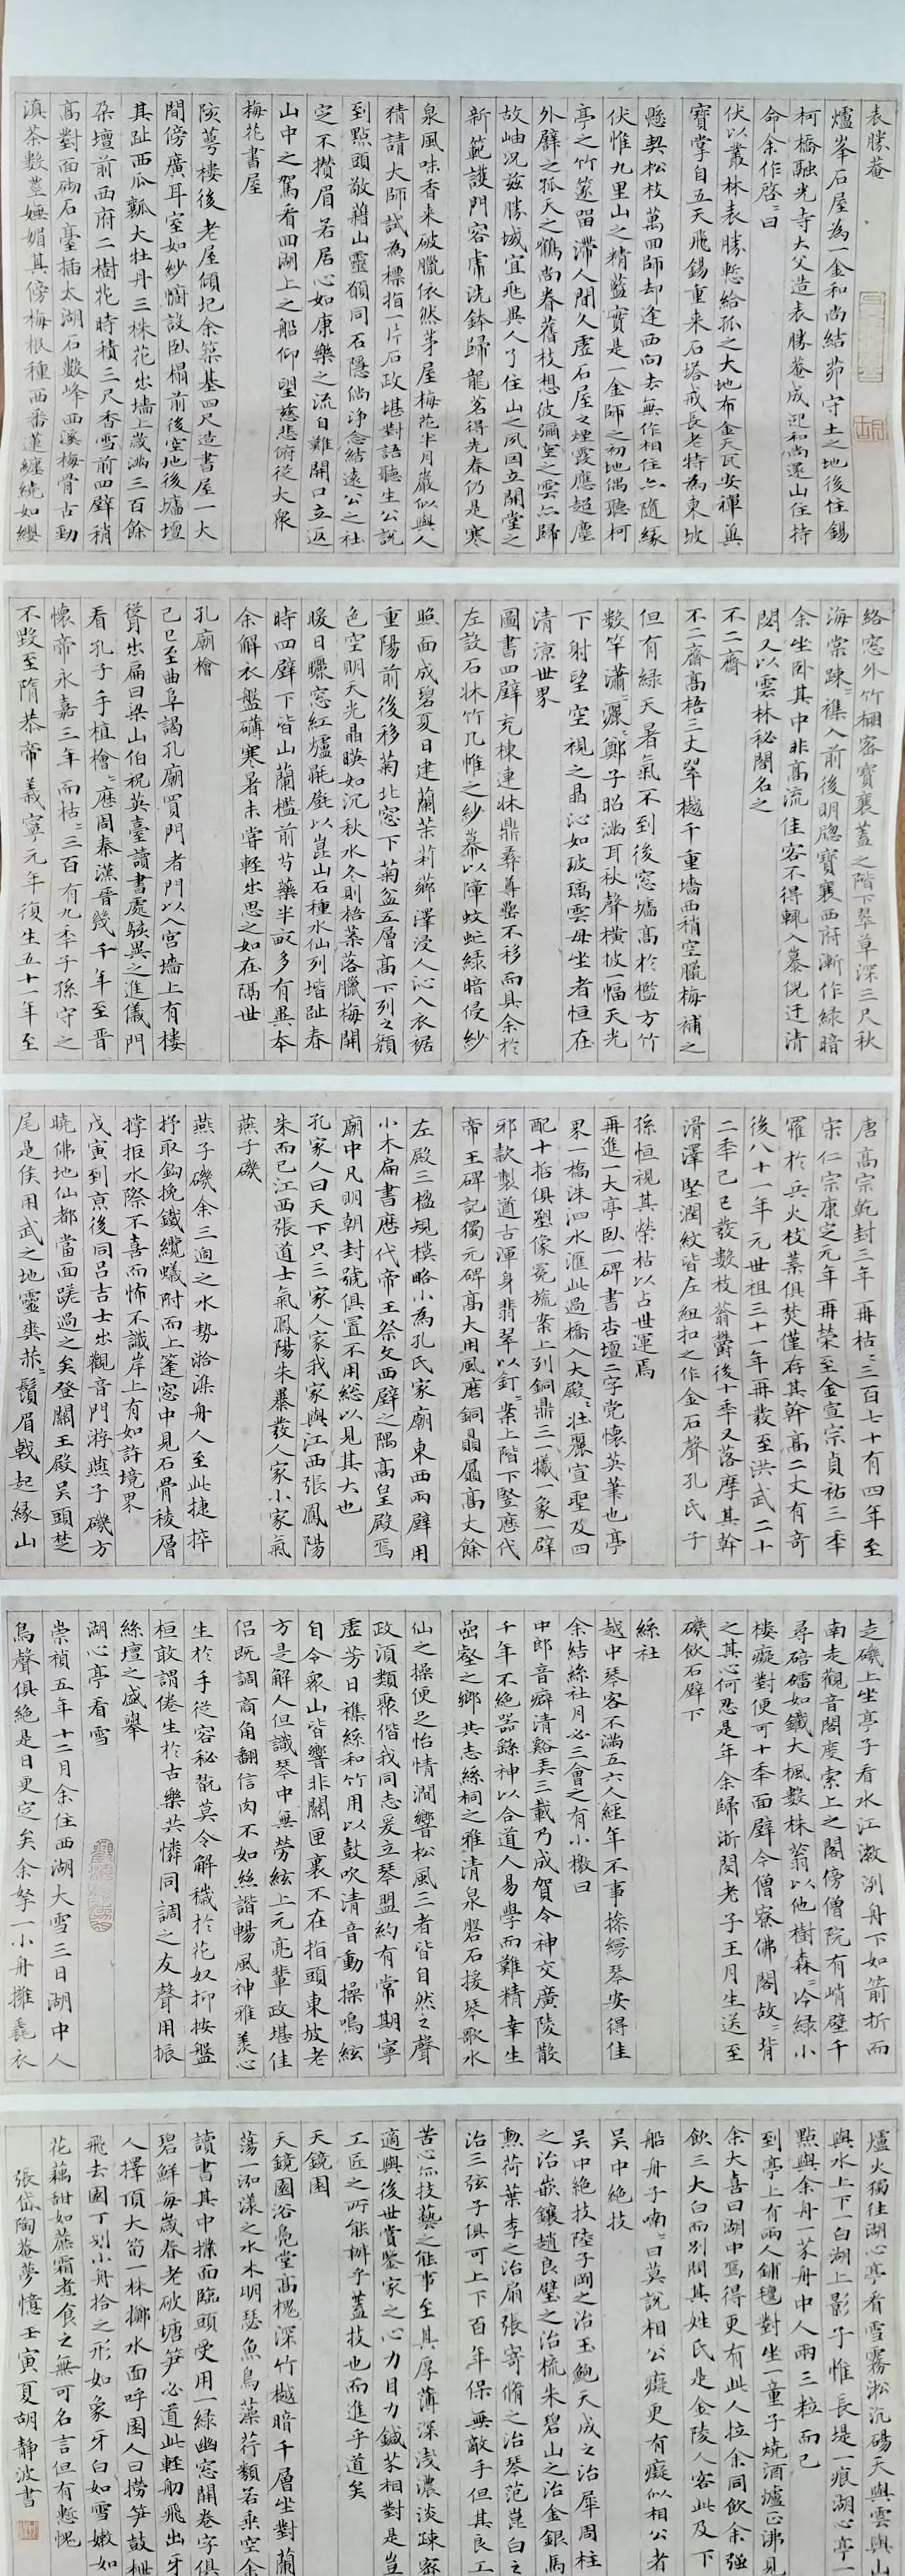 表勝菴
爐峯石屋為一金和尚結茆守土之地後住錫
柯橋融光寺大父造表勝菴成迎和尚還山住持
命余作啓=曰
伏以叢林表勝慙給孤之大地布金天瓦安禪冀
寶掌自五天飛錫重来石塔戒長老特為東坡
懸契松枝萬回師却逢西向去無作相住亦隨緣
伏惟九里山之精藍實是一金師之初地偶聽柯
亭之竹篴留滯人間久虛石屋之煙霞應超塵
外譬之孤天之鶴尚眷舊枝想彼彌空之雲亦歸
故岫况兹勝域宜兆異人了住山之夙因立開堂之
新範護門容虎洗鉢歸龍茗得先春仍是寒
泉風味香来破臘依然茅屋梅花半月巖似與人
猜請大師試為標指一片石政堪對語聽生公說
到點頭敬藉山靈願同石隱倘浄念結遠公之社
定不攢眉若居心如康樂之流自難開口立返
山中之駕看回湖上之船仰望慈悲俯從大衆
梅花書屋
陔萼樓後老屋傾圮余築基四尺造書屋一大
間傍廣耳室如紗幮設臥榻前後空地後墻壇
其趾西瓜瓤大牡丹三株花出墻上歲滿三百餘
朶壇前西府二樹花時積三尺香雪前四壁稍
高對面砌石臺插太湖石數峰西溪梅骨古勁
滇茶數莖嫵媚其傍梅根種西番蓮纏繞如纓
絡窓外竹棚密寶襄蓋之階下翠草深三尺秋
海棠踈=襍入前後明牕寶襄西府漸作緑暗
余坐卧其中非高流佳客不得輒入慕倪迂清
閟又以雲林秘閣名之
不二齋
不二齋高梧三丈翠樾千重墻西稍空臘梅補之
但有緑天暑氣不到後窓墻高於檻方竹
数竿瀟灑=鄭子昭滿耳秋聲橫披一幅天光
下射望空視之晶沁如玻璃雲母坐者恒在
清涼世界
圖書四壁充棟連牀鼎彝尊罍不移而具余於
左設石牀竹几帷之紗幕以障蚊虻緑暗侵紗
照面成碧夏日建蘭茉莉薌澤浸人沁入衣裾
重陽前後移菊北窓下菊盆五層高下列之顔
色空明天光晶暎如沉秋水冬則梧葉落臘梅開
暖日曬窓紅爐毾㲪以崑山石種水仙列堦趾春
時四壁下皆山蘭檻前芍藥半畝多有異本
余解衣盤礴寒暑未嘗輕出思之如在隔世
孔廟檜
己巳至曲阜謁孔廟買門者門以入宮墻上有樓
聳出扁曰梁山伯祝英臺讀書處駭異之進儀門
看孔子手植檜=歷周秦漢晉幾千年至晉
懷帝永嘉三年而枯=三百有九年子孫守之
不毀至隋恭帝義寧元年復生五十一年至
唐高宗乾封三年再枯=三百七十有四年至
宋仁宗康定元年再榮至金宣宗貞祐三年
罹於兵火枝葉俱焚僅存其幹高二丈有奇
後八十一年元世祖三十一年再發至洪武二十
二年己巳發數枝蓊鬱後十年又落摩其幹
滑澤堅潤紋皆左紐扣之作金石聲孔氏子
孫恒視其榮枯以占世運焉
再進一大亭臥一碑書杏壇二字党懷英筆也亭
界一橋洙泗水滙此過橋入大殿=壯麗宣聖及四
配十哲俱塑像冕旒案上列銅鼎三一犧一象一辟
邪款製遒古渾身翡翠以釘=案上階下竪歷代
帝王碑記獨元碑高大用風磨銅贔屭高丈餘
左殿三楹規模略小為孔氏家廟東西兩壁用
小木扁書歷代帝王祭文西壁之隅高皇殿焉
廟中凡明朝封號俱置不用總以見其大也
孔家人曰天下只三家人家我家與江西張鳳陽
朱而已江西張道士氣鳳陽朱暴發人家小家氣
燕子磯
燕子磯余三過之水勢湁潗舟人至此捷捽
抒取鈎挽鐵纜蟻附而上篷窓中見石骨稜層
撑拒水際不喜而怖不識岸上有如許境界
戊寅到亰後同呂吉士出觀音門游燕子磯方
曉佛地仙都當面蹉過之矣登關王殿吴頭楚
尾是侯用武之地靈爽赫=鬚眉戟起緣山
走磯上坐亭子看水江潋洌舟下如箭折而
南走觀音閣度索上之閣傍僧院有峭壁千
尋碚礌如鐵大楓數株蓊以他樹森=冷緑小
樓癡對便可十年面壁今僧寮佛閣故=背
之其心何忍是年余歸浙閔老子王月生送至
磯飲石壁下
絲社
越中琴客不滿五六人經年不事操縵琴安得佳
余結絲社月必三會之有小檄曰
中郎音癖清谿弄三載乃成賀令神交廣陵散
千年不絶器繇神以合道人易學而難精幸生
巖壑之鄉共志絲桐之雅清泉磐石援琴歌水
仙之操便足怡情澗響松風三者皆自然之聲
政須類聚偕我同志爰立琴盟約有常期寧
虛芳日襍絲和竹用以鼓吹清音動操鳴絃
自令衆山皆響非關匣裏不在指頭東坡老
方是解人但識琴中無勞絃上元亮輩政堪佳
侶既調商角翻信肉不如絲諧暢風神雅羨心
生於手從容秘翫莫令解穢於花奴抑按盤
桓敢謂倦生於古樂共憐同調之友聲用振
絲壇之盛舉
湖心亭看雪
崇禎五年十二月余住西湖大雪三日湖中人
鳥聲俱絶是日更定矣余拏一小舟擁毳衣
爐火獨往湖心亭看雪霧淞沆碭天與雲與山
與水上下一白湖上影子惟長堤一痕湖心亭一
點與余舟一芥舟中人兩三粒而已
到亭上有兩人鋪氊對坐一童子燒酒爐正沸見
余大喜曰湖中焉得更有此人拉余同飲余强
飲三大白而别問其姓氏是金陵人客此及下
船舟子喃=曰莫說相公癡更有癡似相公者
吴中絶技
吴中絶技陸子岡之治玉鮑天成之治犀周柱
之治嵌鑲趙良璧之治梳朱碧山之治金銀馬
勲荷葉李之治扇張寄脩之治琴范崑白之
治三弦子俱可上下百年保無敵手但其良工
苦心亦技藝之能事至其厚薄深淺濃淡踈密
適與後世賞鑒家之心力目力鍼芥相對是豈
工匠之所能辦乎蓋技也而進乎道矣
天鏡園
天鏡園浴鳧堂高槐深竹樾暗千層坐對蘭
蕩一泓漾之水木明瑟魚鳥藻荇類若乘空余
讀書其中撲面臨頭受用一緑幽窓開卷字俱
碧鮮每歲春老破塘笋必道此輕舠飛出牙
人擇頂大笱一株擲水面呼園人曰撈笋鼓枻
飛去園丁划小舟拾之形如象牙白如雪嫩如
花藕甜如蔗霜煮食之無可名言但有慙愧
張岱陶菴夢憶壬寅夏胡静波書